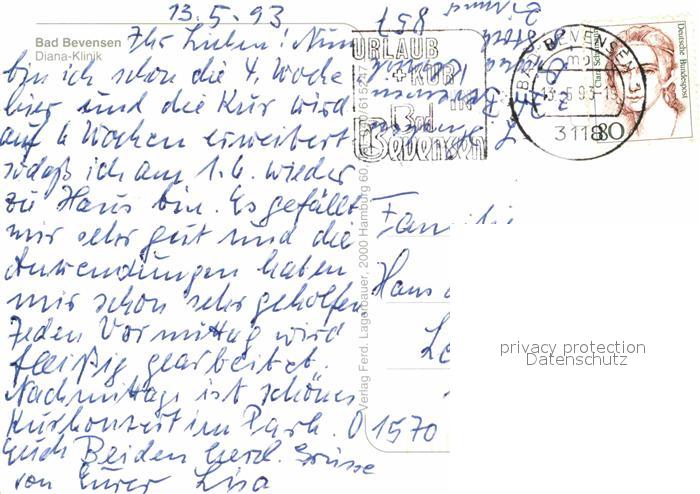 13.5.93
Bad Bevensen
Diana-Klinik
Ihr Lieben! Nun
bin ich schon die 4. Woche
hier und die Kur wird
auf 6 Wochen erweitert
sodaß ich am 1.6. wieder
zu Haus bin. Es gefällt
mir sehr gut und die
Anwendungen haben
mir schon sehr geholfen
Jeden Vormittag wird
fleißig gearbeitet.
Nachmittags ist schönes
Kurkonzert im Park.
Euch Beiden herzl. Grüsse
von Eurer Lisa
Verlag Ferd. Lagerbauer, 2000 Hamburg 60
URLAUB
+KUR
in
Bad
Bevensen
BAD BEVENSEN
13.5.93-15
3118
Deutsche Bundespost
80
857
Zimmer
Familie
Hans
1570
privacy protection
Datenschutz